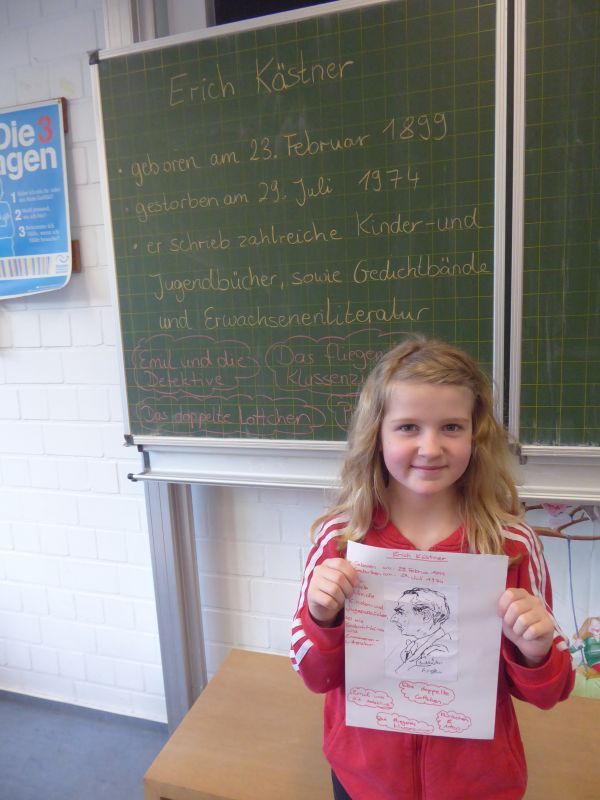 Erich Kästner
• geboren am 23. Februar 1899
• gestorben am 29. Juli 1974
• er schrieb zahlreiche Kinder- und
Jugendbücher, sowie Gedichtbände
und Erwachsenenliteratur
Emil und die
Detektive
Das fliegen
Klassenzi
Das doppelte Lottchen
P
Die 3
agen
1
2
3
Erich Kästner
Geboren am: 23. Februar 1899
Gestorben am: 29. Juli 1974
Kinder- und
Jugendbücher,
so wie
Gedichtbände
und
Erwachsenen-
Literatur
Emil und
die Detektive
Das doppelte
Lottchen
Das fliegende
Pünktchen
&
Anton